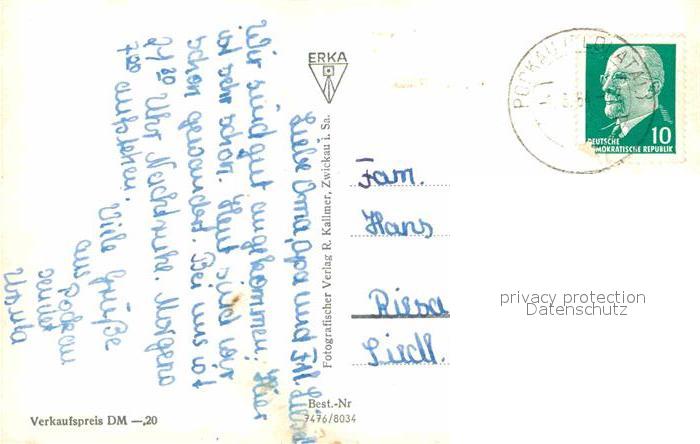 Liebe Oma, Opa und
Wir sind gut angekommen. Hier
ist sehr schön. Heut sind wir
schon gewandert. Bei uns ist
21³⁰ Uhr Nachtruhe. Morgens
7⁰⁰ aufstehen. Viele Grüße
aus Pockau
sendet
Ursula
ERKA
Fotografischer Verlag R. Kallmer, Zwickau i. Sa.
Best.-Nr
7476/8034
Verkaufspreis DM —,20
POCKAU
DEUTSCHE
DEMOKRATISCHE REPUBLIK
10
Fam.
Hans
Riesa
Siedl.
privacy protection
Datenschutz